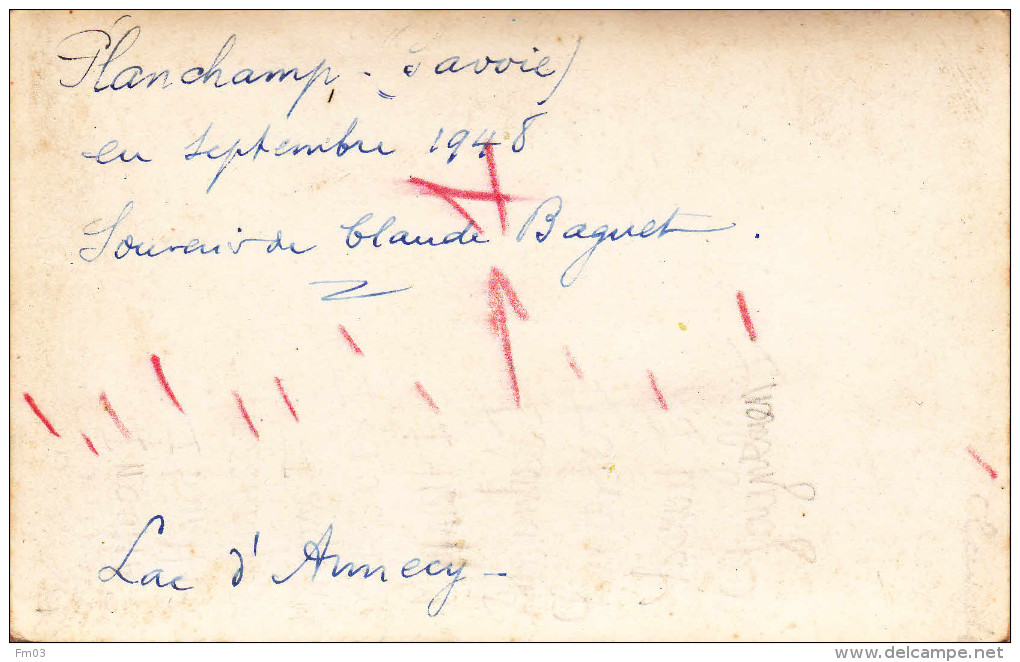 Planchamp - Savoie)
en septembre 1948
Souvenir de Claude Baguet.
Lac d'Annecy -
Fm03
www.delcampe.net